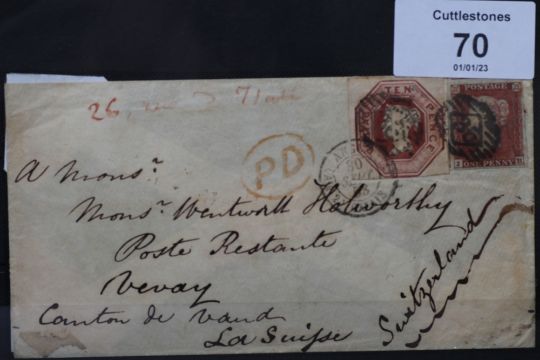 Cuttlestones
70
01/01/23
26,
TEN
PENCE
POSTAGE
ONE PENNY
PD
A Monsr
Monsr Wentworth Holworthy
Poste Restante
Vevay
Canton de Vaud
La Suisse
Switzerland